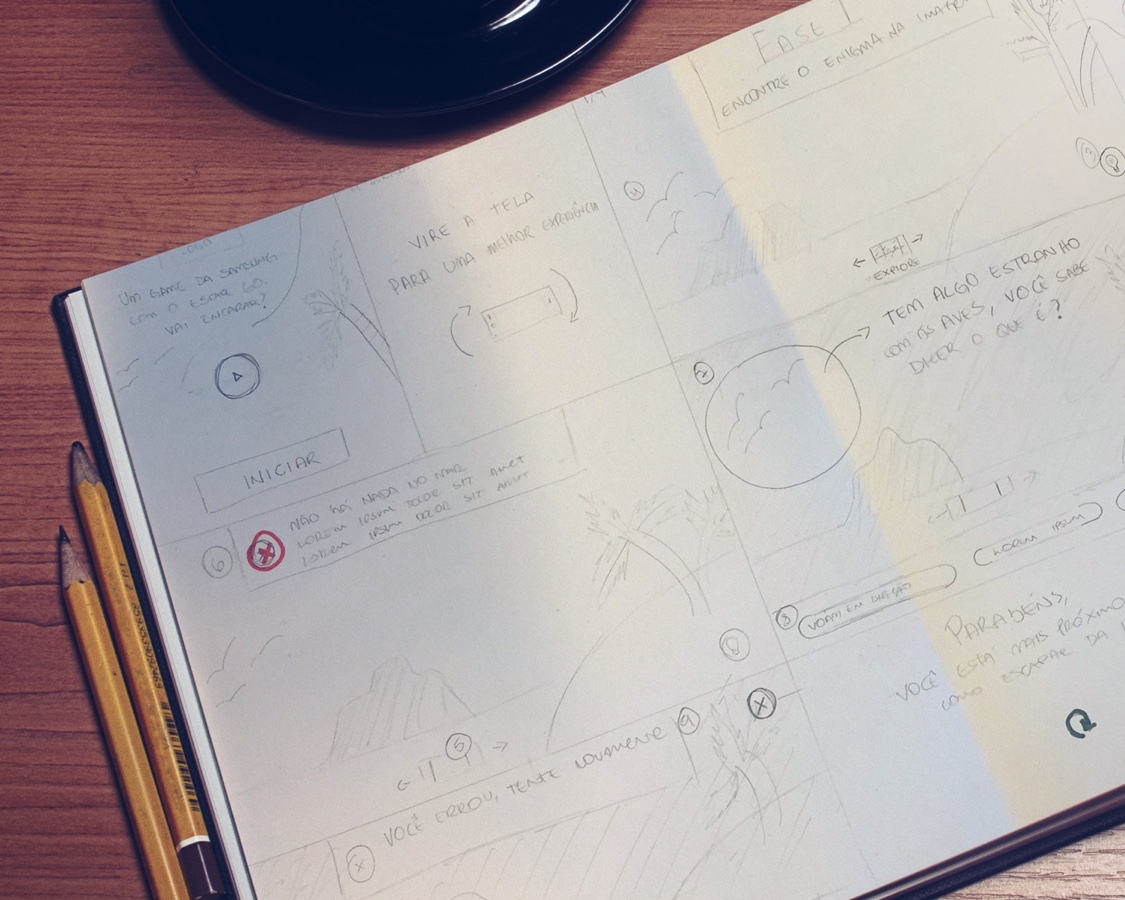 LOGO
UM GAME DA SAMSUNG
COM O ESCAPE 60.
VAI ENCARAR?
INICIAR
VIRE A TELA
PARA UMA MELHOR EXPERIÊNCIA
4
FASE 1
ENCONTRE O ENIGMA NA
EXPLORE
TEM ALGO ESTRANHO
COM AS AVES, VOCÊ SABE
DIZER O QUE É?
6
NÃO HÁ NADA NO MAR
LOREM IPSUM DOLOR SIT AMET
LOREM IPSUM DOLOR SIT AMET
5
8
VOAM EM DIREÇÃO
LOREM IPSUM
9
X
X
VOCÊ ERROU, TENTE NOVAMENTE
PARABÉNS,
VOCÊ ESTÁ MAIS PRÓXIMO
COMO ESCAPAR DA